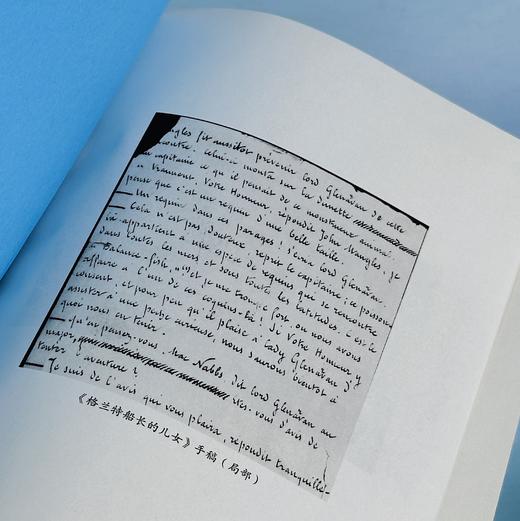 ngles fit aussitôt prévenir lord Glenarvan de cette
contre. Celui-ci monta sur la dunette
capitaine ce qu'il pensait de ce monstrueux animal.
Vraiment, Votre Honneur, répondit John Mangles, je
pense que c'est un requin d'une belle taille.
— Un requin dans ces parages ! s'écria lord Glenarvan.
— Cela n'est pas douteux, reprit le capitaine ; ce poisson
là appartient à une espèce de requins qui se rencontre
dans toutes les mers et sous toutes les latitudes. C'est le
« Balance-fish, » et je me trompe fort, ou nous avons
affaire à l'un de ces coquins-là ! Si Votre Honneur y
consent, et pour peu qu'il plaise à Lady Glenarvan d'
assister à une pêche curieuse, nous saurons bientôt à
quoi nous en tenir.
— Qu'en pensez-vous, Mac Nabbs, dit lord Glenarvan au
major, êtes-vous d'avis de
tenter l'aventure ?
— Je suis de l'avis qui vous plaira, répondit tranquille-
《格兰特船长的儿女》手稿(局部)